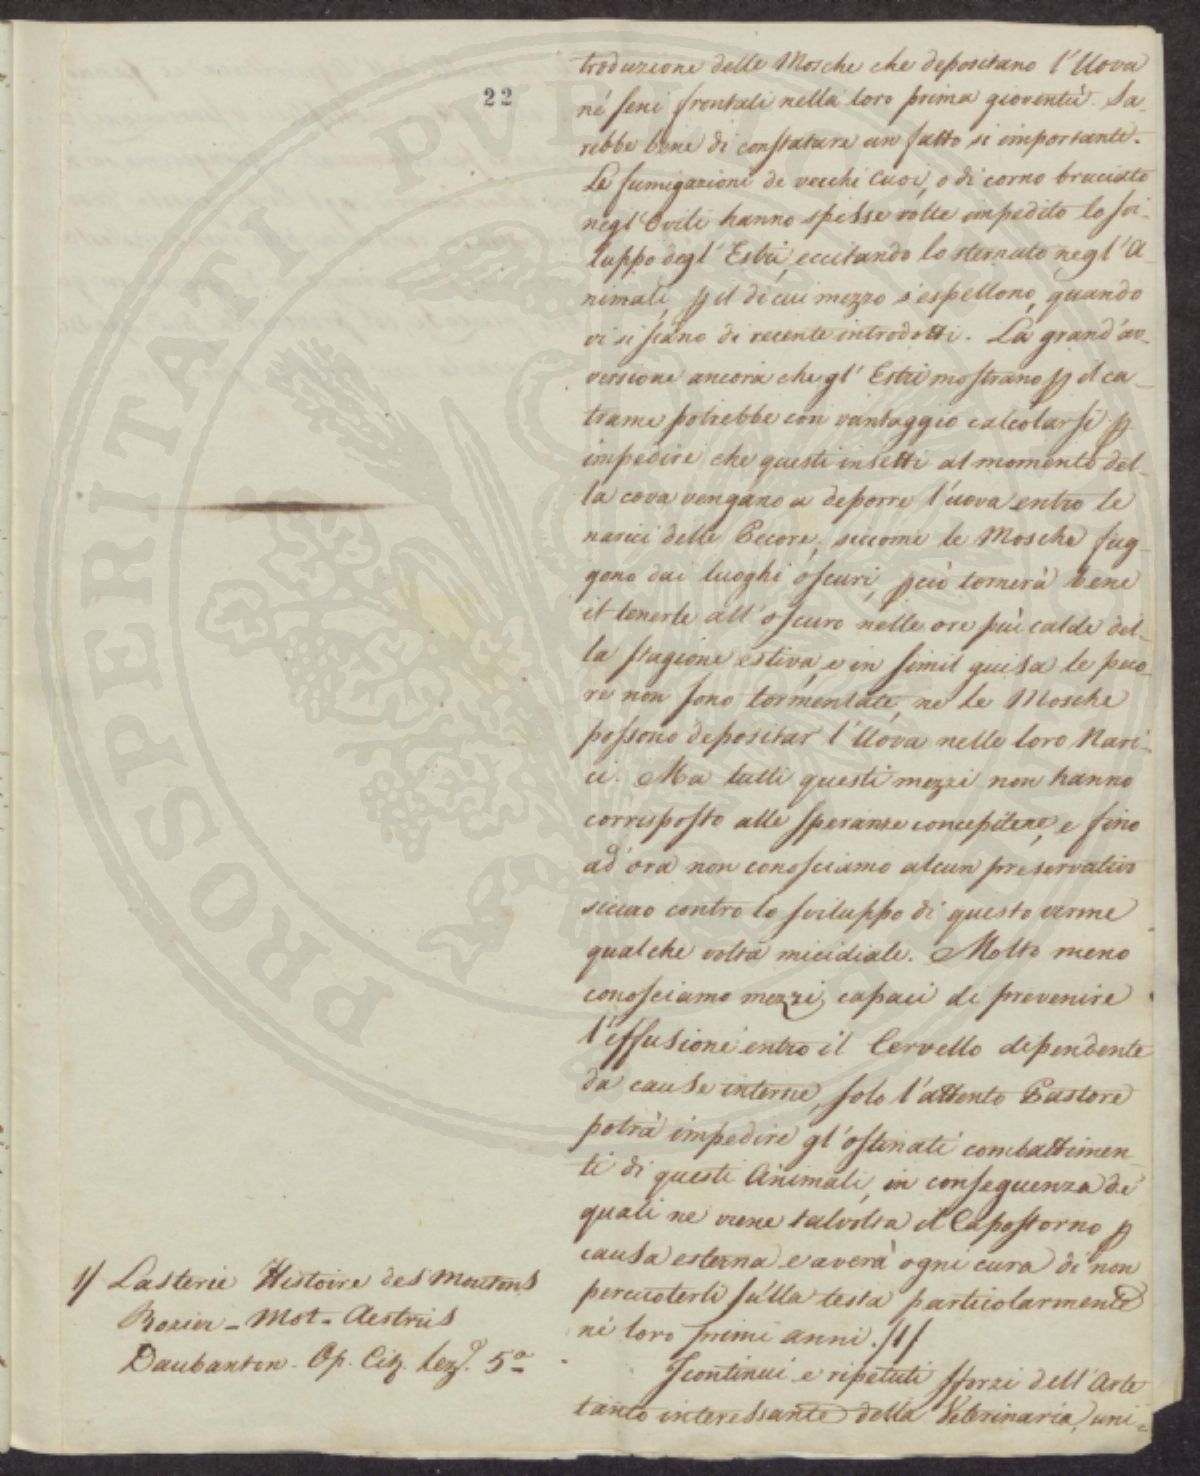 22
troduzione delle Mosche che depositano l'Uova
ne' seni frontali nella loro prima gioventù. Sa-
rebbe bene di constatare un fatto si importante.
Le fumigazioni de vecchi Cuoi, o di corno bruciato
negl'Ovili hanno spesse volte impedito lo svi-
luppo degl'Estri, eccitando lo sternuto negl'A-
nimali, p il di cui mezzo s'espellono, quando
vi si siano di recente introdotti. La grand'av-
versione ancora che gl'Estri mostrano p il ca-
trame potrebbe con vantaggio calcolarsi p
impedire che questi insetti al momento del-
la cova vengano a deporre l'uova entro le
narici delle Pecore; siccome le Mosche fug-
gono dai luoghi oscuri, pciò tornerà bene
il tenerle all'oscuro nelle ore più calde del-
la stagione estiva, e in simil guisa le peco-
re non sono tormentate, ne le Mosche
possono depositar l'Uova nelle loro Nari-
ci. Ma tutti questi mezzi non hanno
corrisposto alle speranze concepitene, e fino
ad'ora non conosciamo alcun preservativo
sicuro contro lo sviluppo di questo verme
qualche volta micidiale. Molto meno
conosciamo mezzi capaci di prevenire
l'effusione entro il Cervello dipendente
da cause interne, solo l'attento Pastore
potrà impedire gl'ostinati combattimen-
ti di questi Animali, in conseguenza de'
quali ne viene talvolta il Capostorno p
causa esterna e averà ogni cura di non
percuoterli sulla testa particolarmente
ne loro primi anni. /1/
I continui e ripetuti sforzi dell'Arte
tanto interessante della Veterinaria, uni-
1/ Lasterie Histoire des Moutons
Rozier - Mot - Aestrus
Daubanton. Op. Cit. Lez. 5ª
PROSPERITATI PVBLICAE